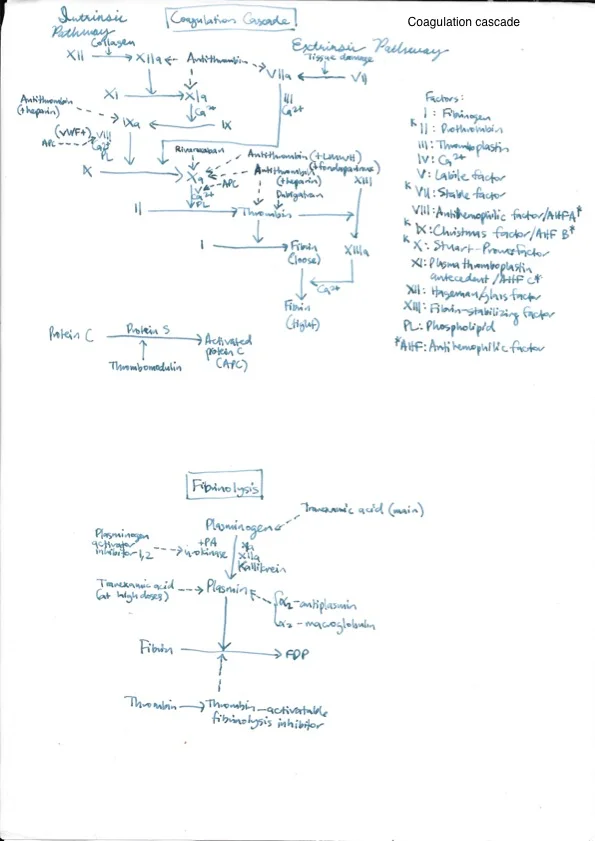 Coagulation cascade
Intrinsic
Pathway
Coagulation Cascade
Extrinsic Pathway
Collagen
Tissue damage
XII
XIIa
Antithrombin
VIIa
VII
XI
XIa
III
Ca2+
Ca2+
Antithrombin
(+heparin)
IXa
IX
(vWF+) VIII
APC
Ca2+
PL
Rivaroxaban
Antithrombin (+LMWH)
(+fondaparinux)
Antithrombin
(+heparin)
XIII
X
Xa
V
APC
Ca2+
PL
Dabigatran
II
Thrombin
I
Fibrin
(loose)
XIIIa
Ca2+
Fibrin
(tight)
Factors:
I: Fibrinogen
K II: Prothrombin
III: Thromboplastin
IV: Ca2+
V: Labile factor
K VII: Stable factor
VIII: Antihemophilic factor/AHF A*
K IX: Christmas factor/AHF B*
K X: Stuart-Prower factor
XI: Plasma thromboplastin
antecedent/AHF C*
XII: Hageman/glass factor
XIII: Fibrin-stabilizing factor
PL: Phospholipid
*AHF: Antihemophilic factor
Protein C
Protein S
Activated
protein C
(APC)
Thrombomodulin
Fibrinolysis
Plasminogen
Tranexamic acid (main)
Plasminogen
activator
inhibitor 1,2
tPA
urokinase
XIa
XIIa
Kallikrein
Tranexamic acid
(at high doses)
Plasmin
α2-antiplasmin
α2-macroglobulin
Fibrin
FDP
Thrombin
Thrombin-activatable
fibrinolysis inhibitor